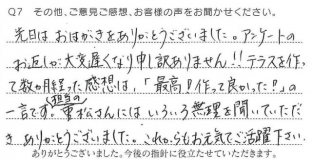 Q7 その他、ご意見ご感想、お客様の声をお聞かせください。
先日はおはがきをありがとうございました。アンケートの
お返しが大変遅くなり申し訳ありません!! テラスを作っ
て数か月経った感想は、「最高!作って良かった!」の
一言です。担当の重松さんにはいろいろ無理を聞いていただ
きありがとうございました。これからもお元気でご活躍下さい。
ありがとうございました。今後の指針に役立たせていただきます。